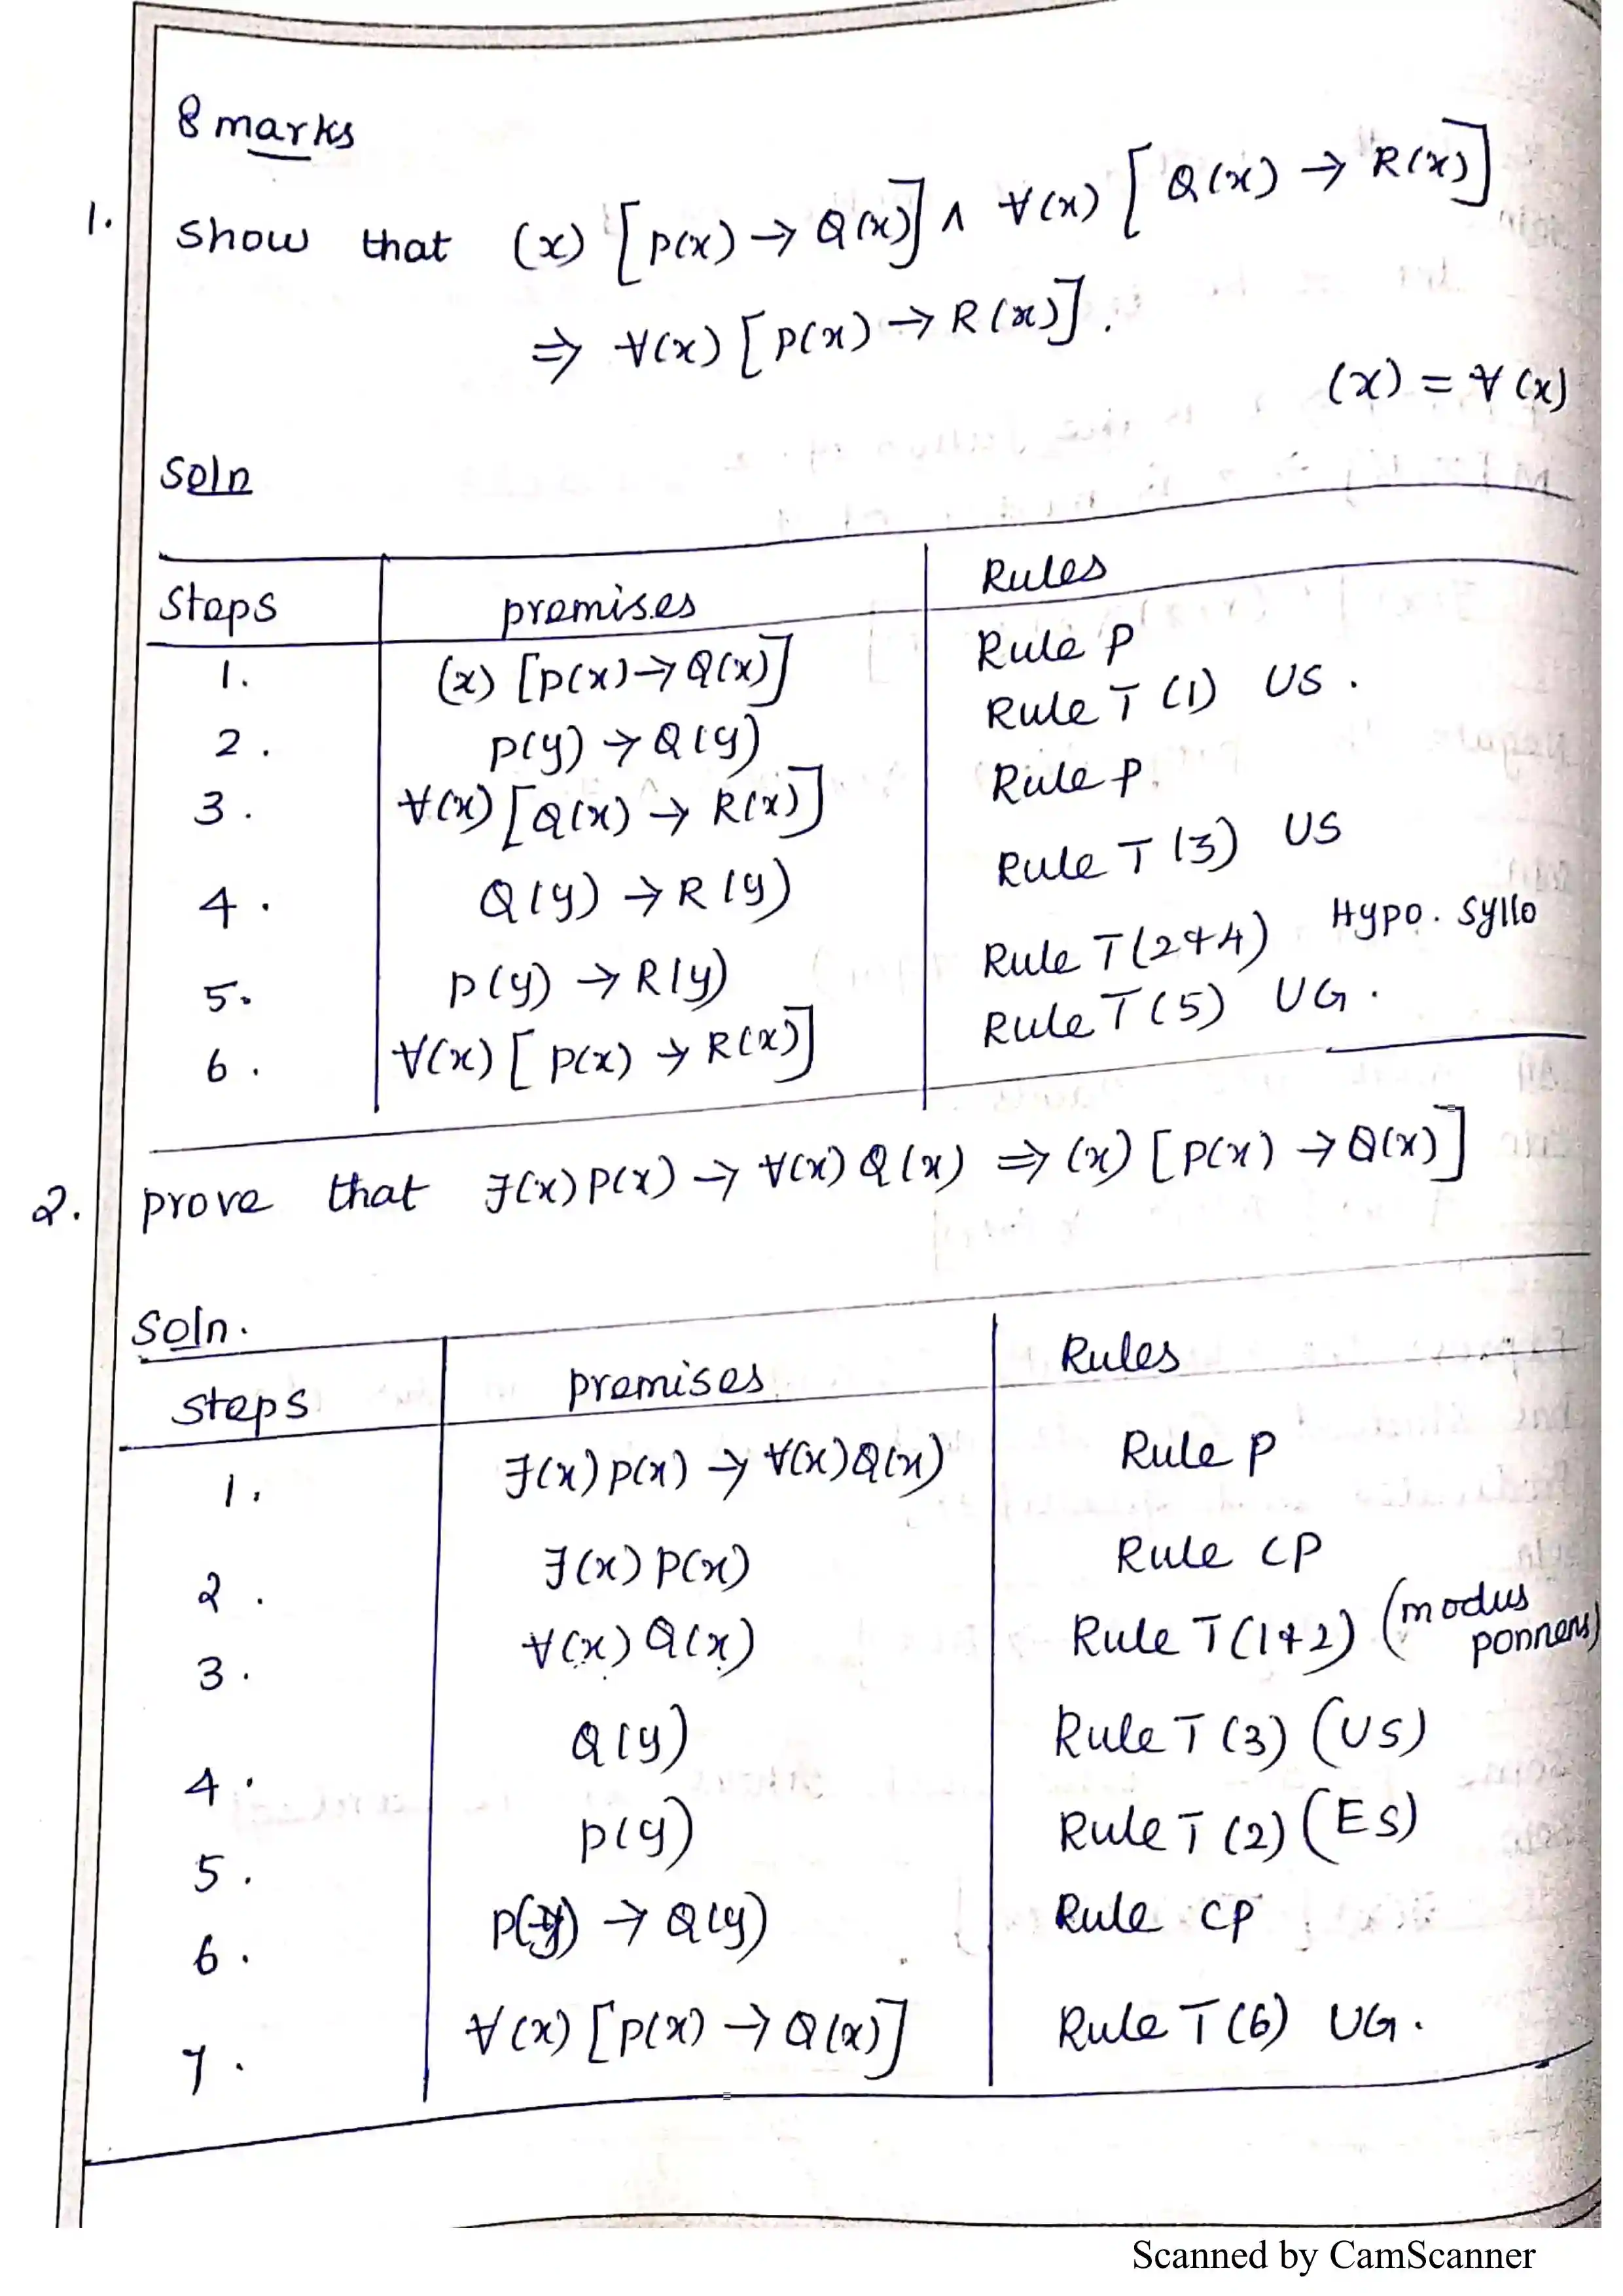 8 marks
1. Show that (x) [P(x) → Q(x)] ∧ ∀(x) [Q(x) → R(x)]
⇒ ∀(x) [P(x) → R(x)].
(x) = ∀(x)
Soln
Steps premises Rules
1. (x) [P(x) → Q(x)] Rule P
2. P(y) → Q(y) Rule T (1) US.
3. ∀(x) [Q(x) → R(x)] Rule P.
4. Q(y) → R(y) Rule T (3) US
5. P(y) → R(y) Rule T(2&4) Hypo. Syllo
6. ∀(x) [P(x) → R(x)] Rule T(5) UG.
2. prove that ∃(x) P(x) → ∀(x) Q(x) ⇒ (x) [P(x) → Q(x)]
Soln.
Steps premises Rules
1. ∃(x) P(x) → ∀(x) Q(x) Rule P
2. ∃(x) P(x) Rule CP
3. ∀(x) Q(x) Rule T(1&2) (modus ponnens)
4. Q(y) Rule T (3) (US)
5. P(y) Rule T (2) (ES)
6. P(y) → Q(y) Rule CP
7. ∀(x) [P(x) → Q(x)] Rule T(6) UG.
Scanned by CamScanner